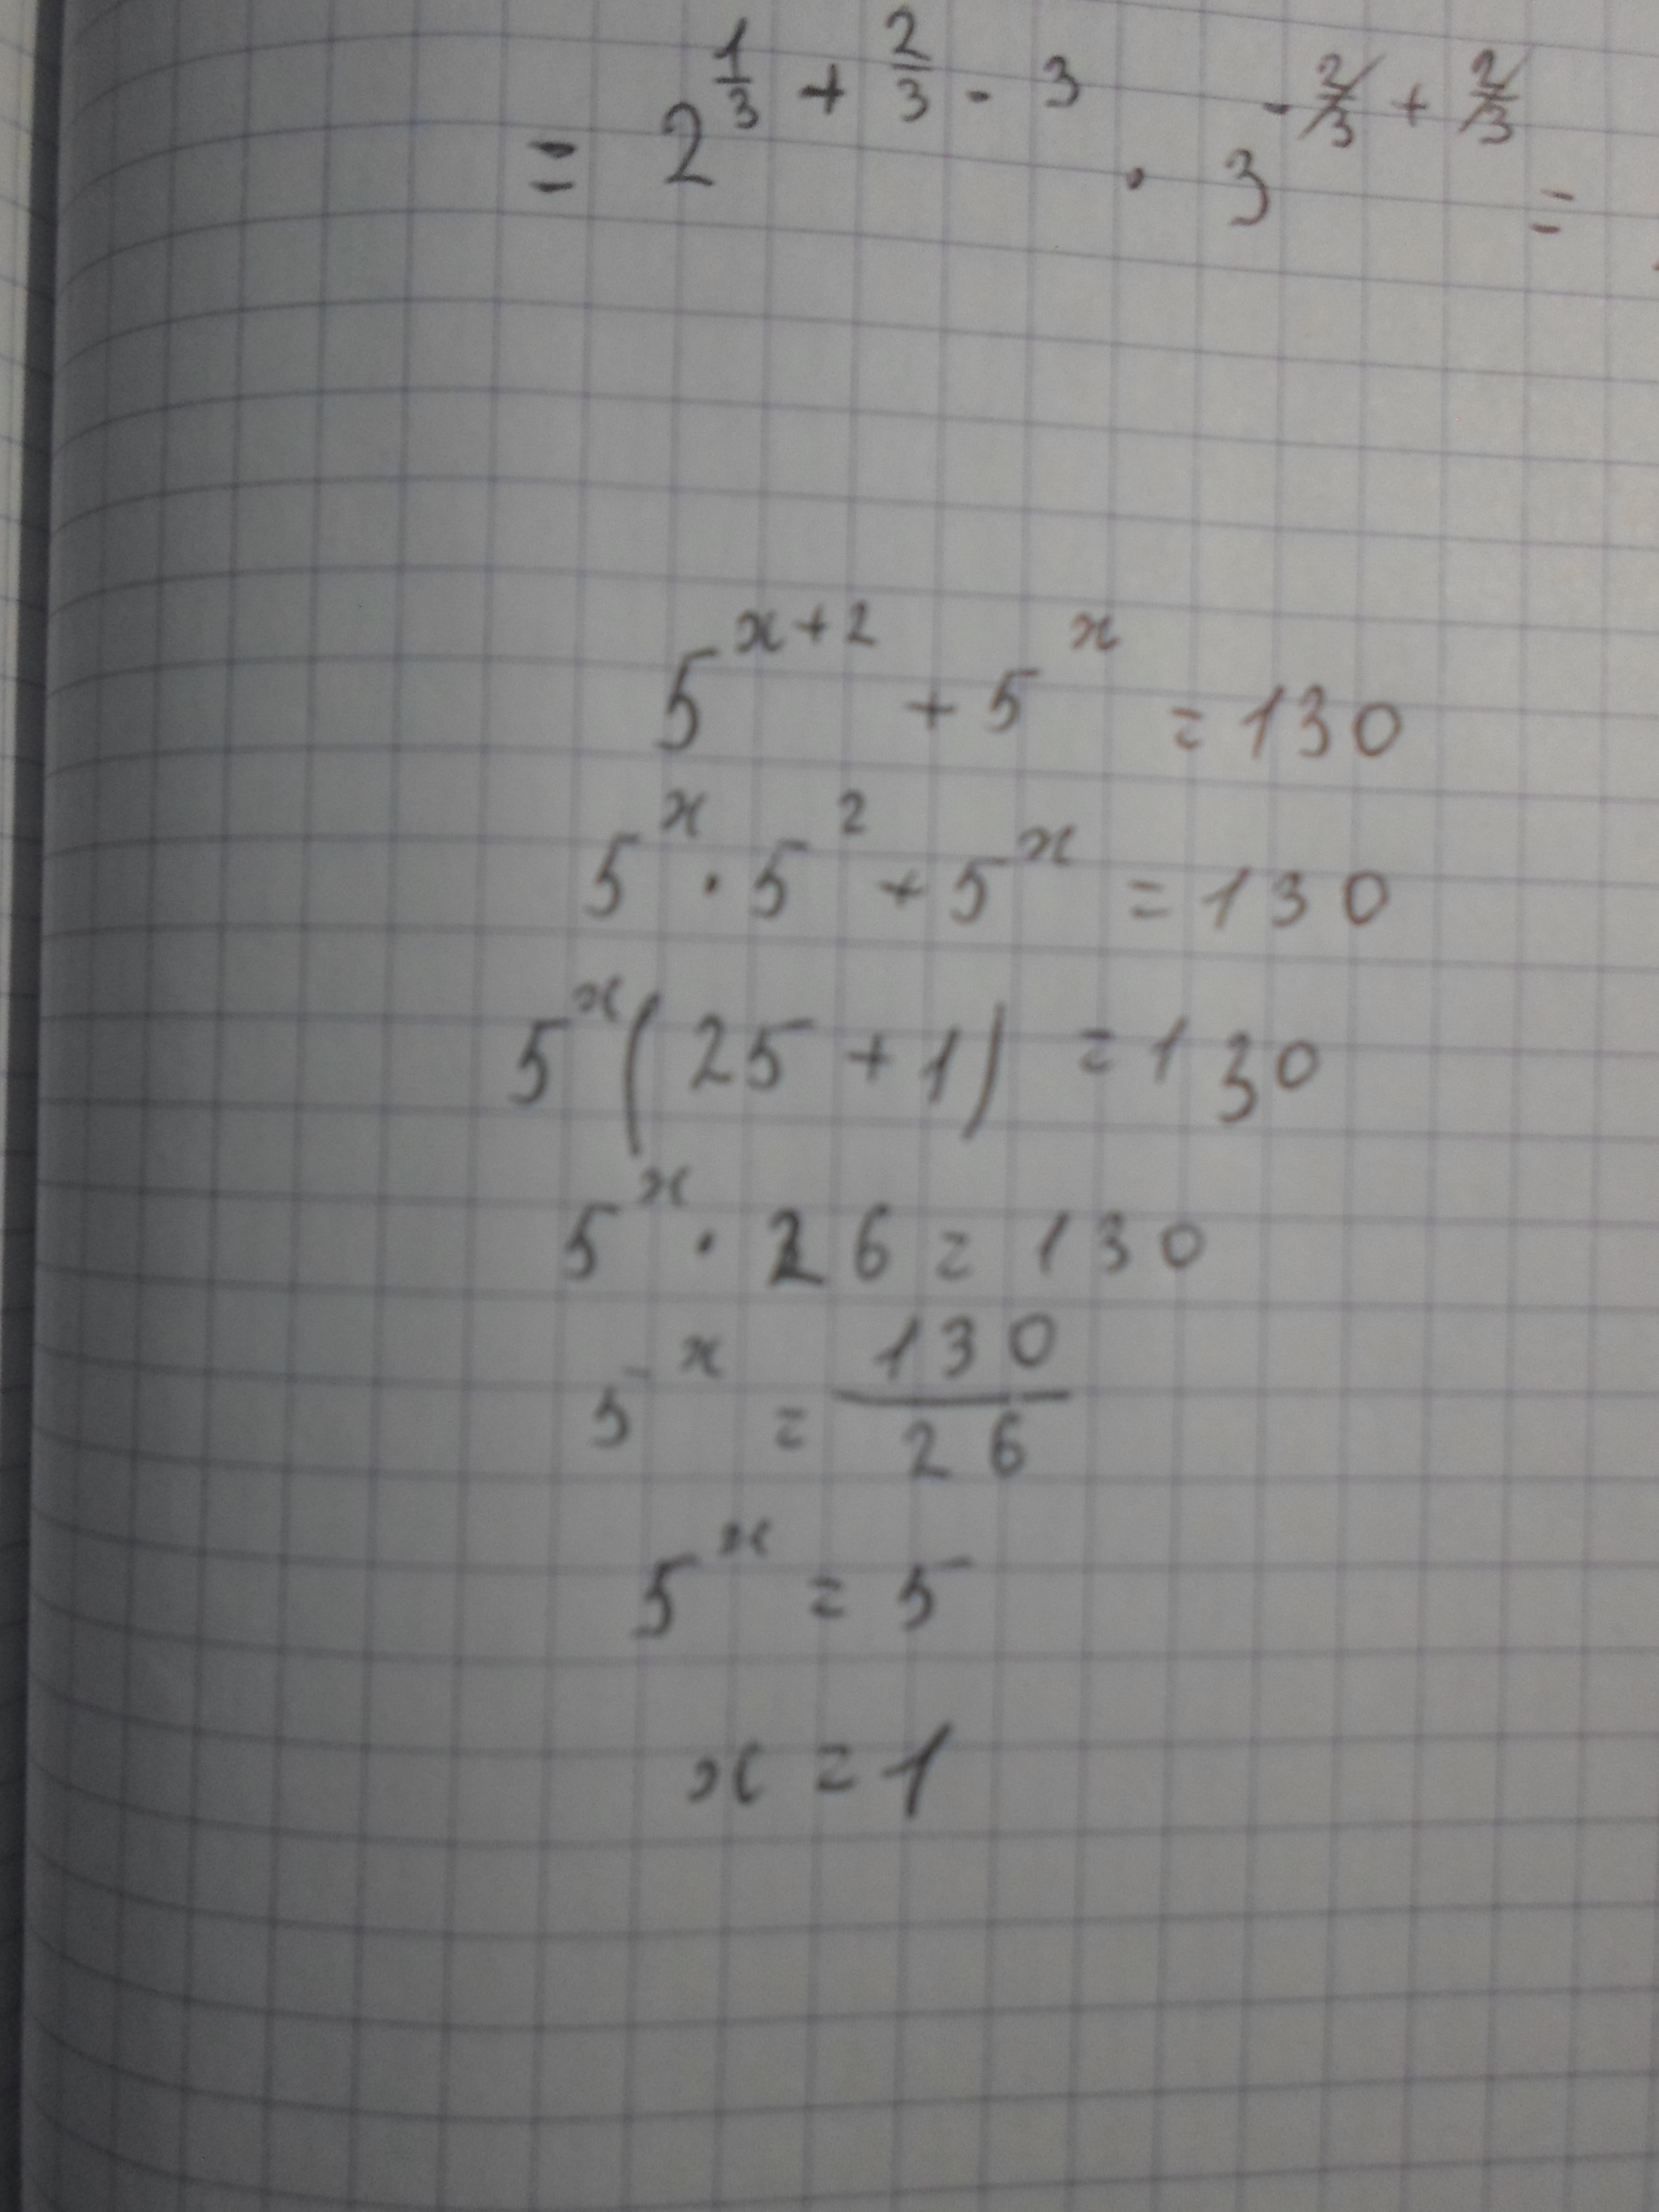 = 2^{\frac{1}{3} + \frac{2}{3} - 3} · 3^{-\frac{2}{3} + \frac{2}{3}} =
5^{x+2} + 5^{x} = 130
5^{x} · 5^{2} + 5^{x} = 130
5^{x}(25 + 1) = 130
5^{x} · 26 = 130
5^{x} = \frac{130}{26}
5^{x} = 5
x = 1